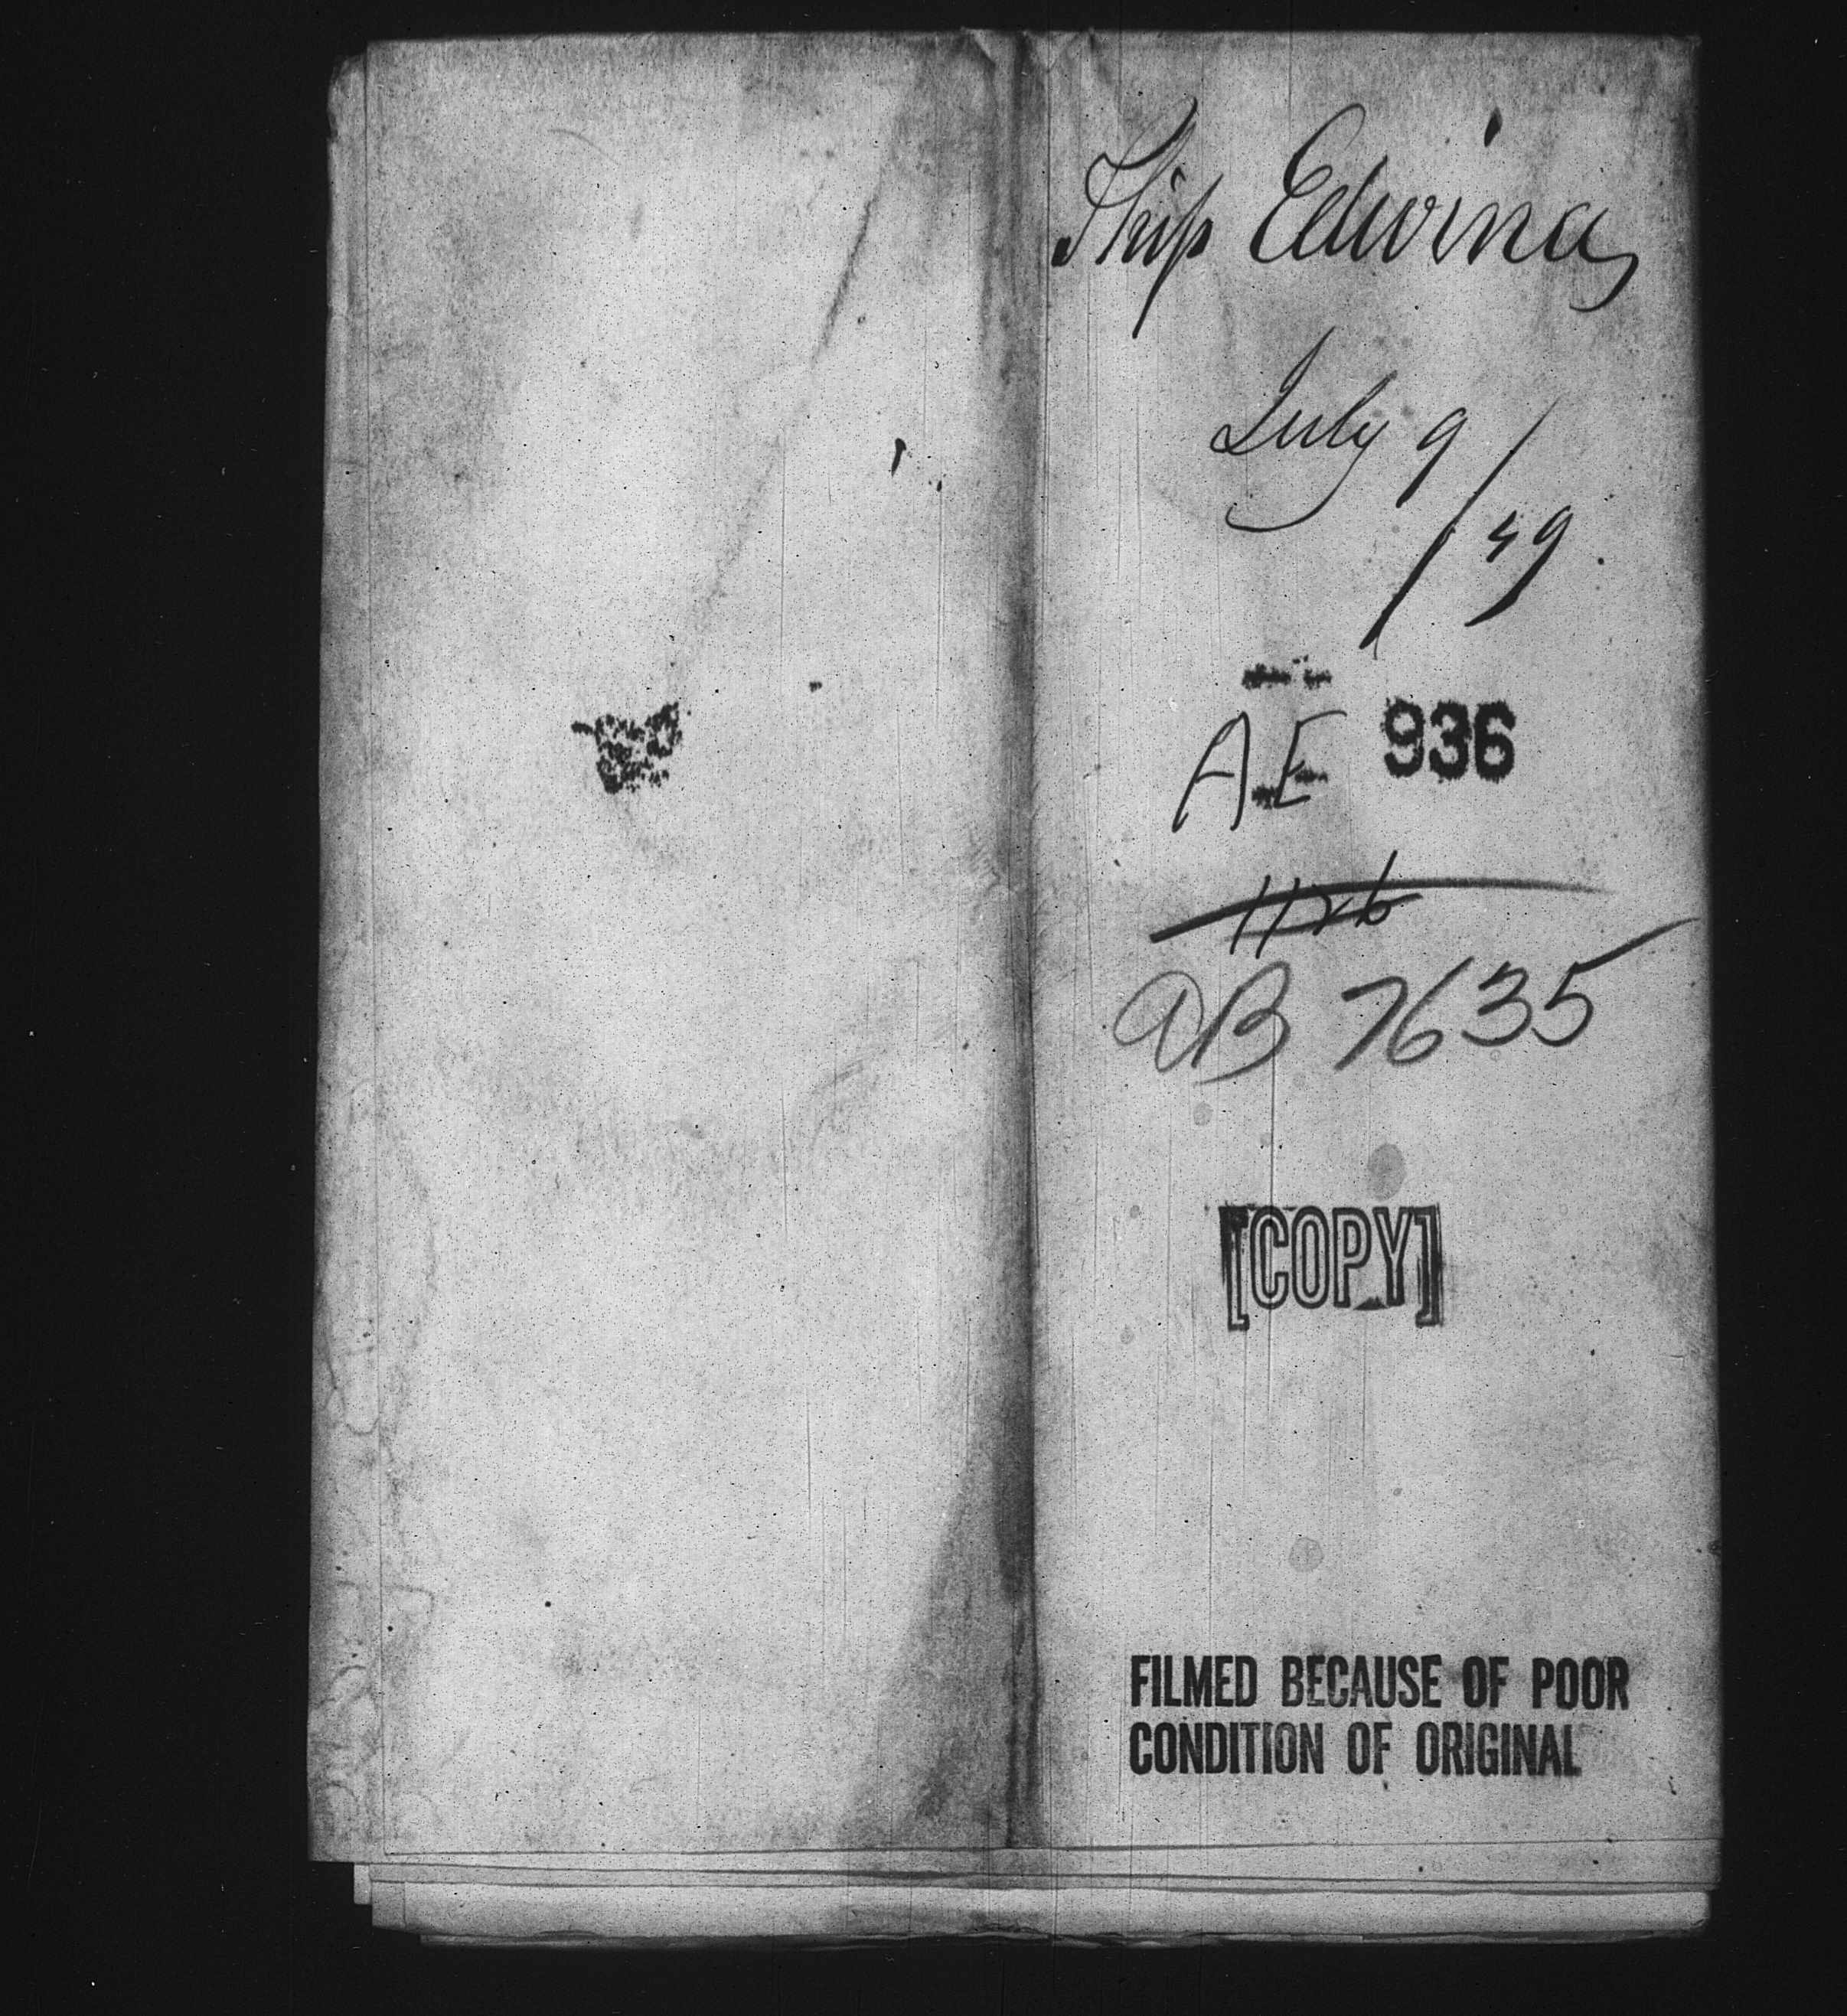 Ship Edwina,
July 9/49.
AE 936
DB 7635
[COPY]
FILMED BECAUSE OF POOR
CONDITION OF ORIGINAL